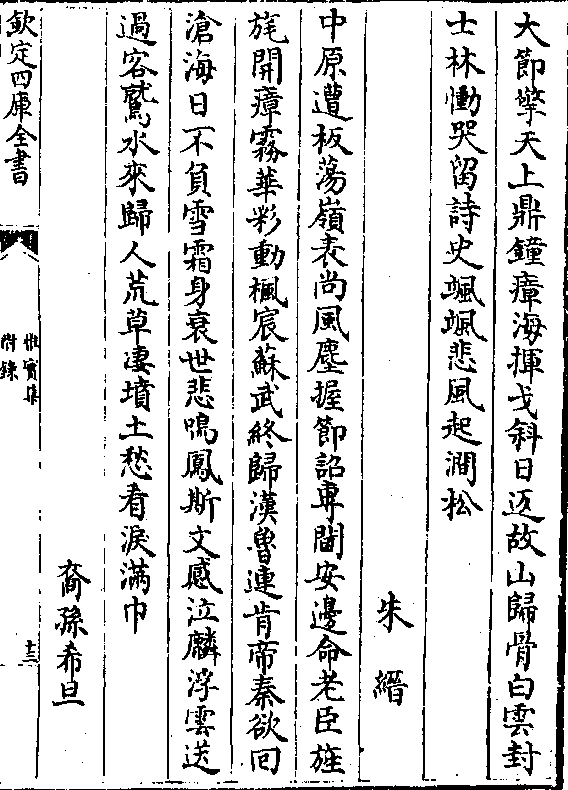 大節擎天上鼎鐘瘴海揮戈斜日返故山歸骨白雲封
士林慟哭留詩史颯颯悲風起澗松
朱縉
中原遭板蕩嶺表尚風塵握節詔専閫安邊命老臣旌
旄開瘴霧華彩動楓宸蘇武終歸漢魯連肯帝秦欲回
滄海日不負雪霜身衰世悲鳴鳳斯文感泣麟浮雲送
過客鵞水來歸人荒草凄墳土愁看淚滿巾
裔孫希旦
欽定四庫全書
惟實集
附錄
十三